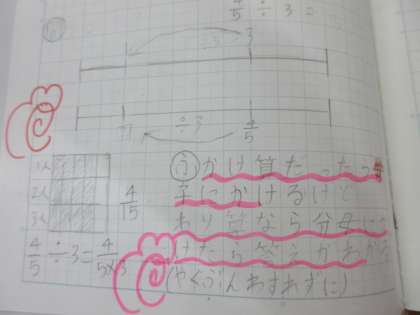 4/5 ÷ 3 =
3
÷3
4/5
1人
2人
3人
4/15
4/5 ÷ 3 = 4/5×3
う かけ算だったら
子にかけるけど
わり算なら分母に
けたら答えがわかる
(やくぶんわすれずに)